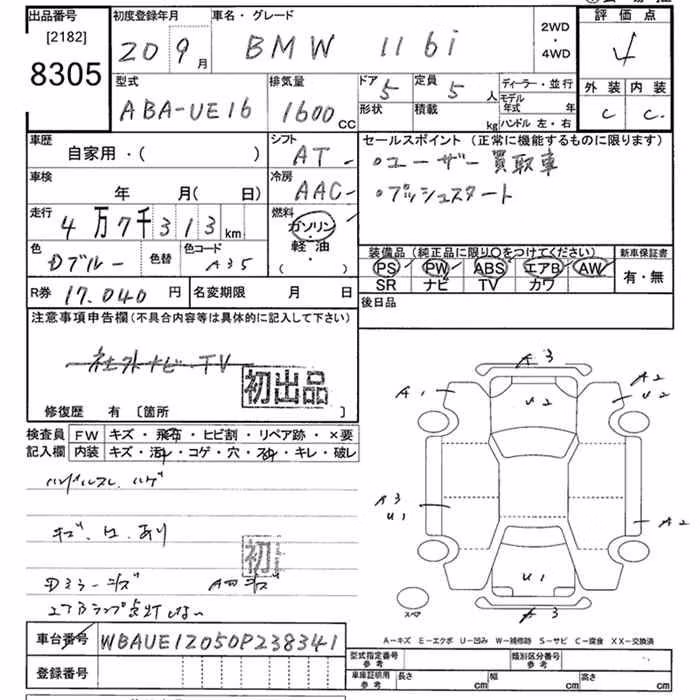 出品番号
[2182]
8305
初度登録年月
20 9 月
車名・グレード
BMW 116i
2WD
・
4WD
評価点
4
外装 内装
C C
型式
ABA-UE16
排気量
1600 CC
ドア 5
形状
定員 5 人
積載 kg
ディーラー・並行
モデル年式 年
ハンドル 左・右
車歴
自家用・( )
シフト
AT
セールスポイント (正常に機能するものに限ります)
・ユーザー買取車
・プッシュスタート
車検
年 月( 日)
冷房
AAC
走行
4万7千313km
燃料
ガソリン
軽・油
( )
色
Dブルー
色替
色コード
A35
装備品 (純正品に限り〇をつけてください)
PS PW ABS エアB AW
SR ナビ TV カワ
新車保証書
有・無
R券 17.040 円
名変期限 月 日
後日品
注意事項申告欄(不具合内容等は具体的に記入して下さい)
社外ナビ・TV
初出品
修復歴 有 〔箇所 〕
検査員
記入欄
FW キズ・飛石・ヒビ割・リペア跡・×要
内装 キズ・汚れ・コゲ・穴・スレ・キレ・破レ
キズ、凹、あり
初
Dミラーキズ
エアBランプ点灯しない
A3
A1
U2
A2
U2
A3
U1
A2
U1
A3
スペア
A-キズ E-エクボ U-凹み W-補修跡 S-サビ C-腐食 XX-交換済
車台番号 WBAUE12050P238341
登録番号
型式指定番号 参考
類別区分番号 参考
車庫証明用 参考 長さ cm 幅 cm 高さ cm